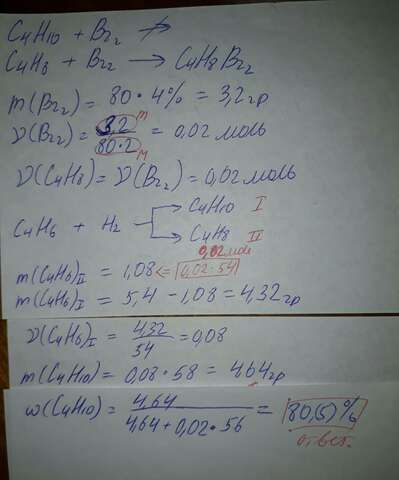 C4H10 + Br2 ↛
C4H8 + Br2 → C4H8Br2
m(Br2) = 80 · 4% = 3,2гр
ν(Br2) = 3,2 m / 80·2 M = 0,02 моль
ν(C4H8) = ν(Br2) = 0,02 моль
C4H6 + H2 → C4H10 I
→ C4H8 II
0,02 моль
m(C4H6)II = 1,08 <= 0,02·54
m(C4H6)I = 5,4 - 1,08 = 4,32гр
ν(C4H6)I = 4,32 / 54 = 0,08
m(C4H10) = 0,08·58 = 4,64гр
ω(C4H10) = 4,64 / 4,64 + 0,02·56 = 80,(5)%
ответ.